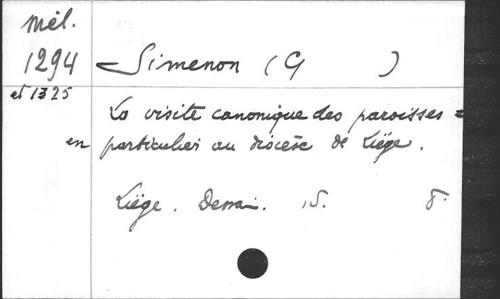 Mél.
1294
et 1325
Simenon (G )
La visite canonique des paroisses =
en particulier au diocèse de Liège.
Liège. Dessain. 1S. 8.